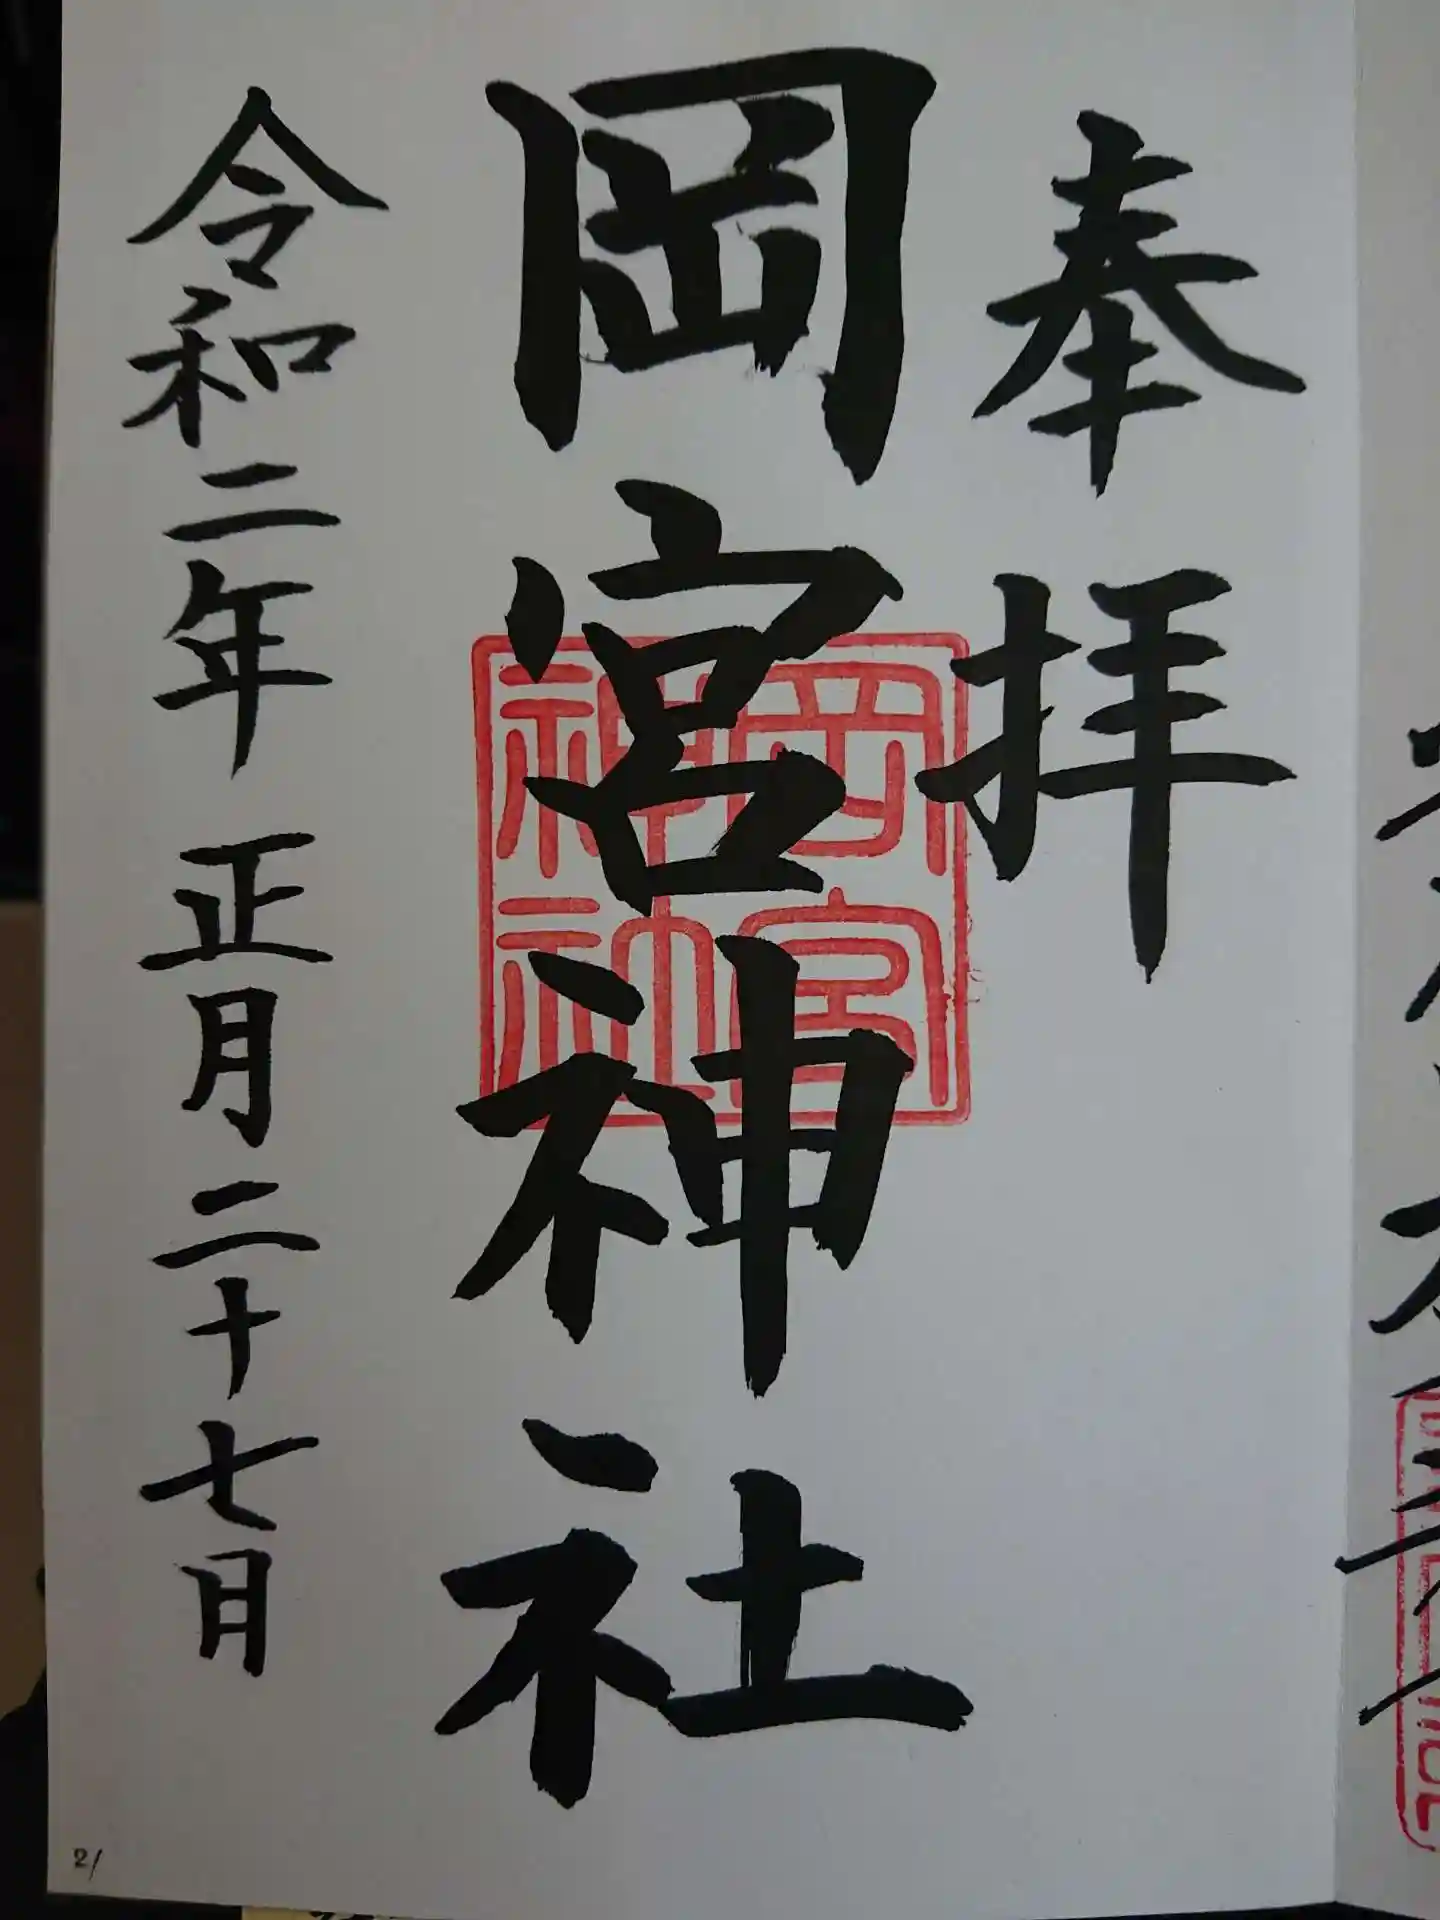 奉拝
岡宮神社
岡宮
神社
令和二年 正月二十七日
21